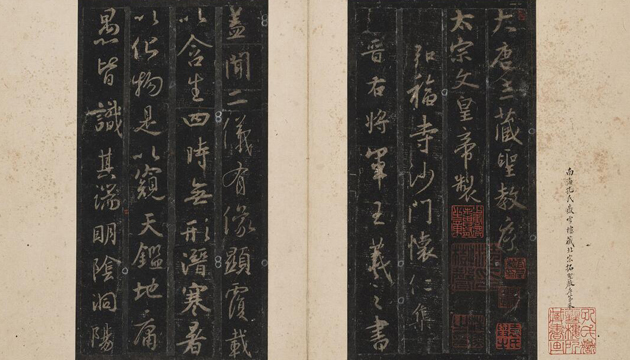 南海孔氏嶽雪樓藏北宋拓聖教序
大唐三藏聖教序
太宗文皇帝製
弘福寺沙門懷仁集
晉右將軍王羲之書
蓋聞二儀有像顯覆載
以含生四時無形潛寒暑
以化物是以窺天鑑地庸
愚皆識其端明陰洞陽